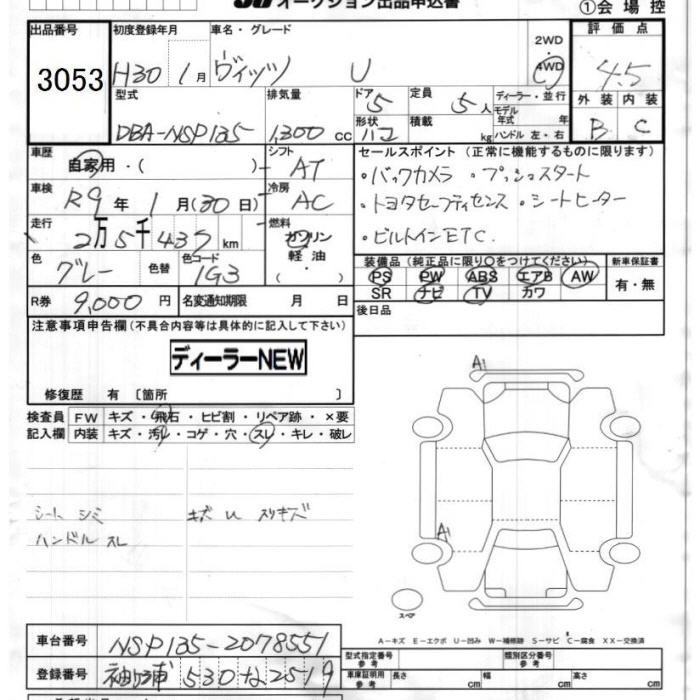 オークション出品申込書
①会場控
出品番号 初度登録年月 車名・グレード 2WD 4WD 評価点
3053 H30 1月 ヴィッツ U 4.5
型式 排気量 ドア 5 定員 5人 ディーラー・並行 外装 内装
DBA-NSP135 1,300 cc 形状 ハコ 積載 kg モデル年式 年 ハンドル 左・右 B C
車歴 自家用・( ) シフト AT セールスポイント (正常に機能するものに限ります)
車検 R9年 1月(30日) 冷房 AC ・バックカメラ ・プッシュスタート
・トヨタセーフティセンス ・シートヒーター
走行 2万5千437km 燃料 ガソリン 軽油・( ) ・ビルトインETC.
色 グレー 色替 色コード 1G3 装備品 (純正品に限り○をつけてください) 新車保証書
PS PW ABS エアB AW 有・無
SR ナビ TV カワ
R券 9,000円 名変通知期限 月 日 後日品
注意事項申告欄(不具合内容等は具体的に記入して下さい)
ディーラーNEW
修復歴 有〔箇所 〕
検査員記入欄 FW キズ・飛石・ヒビ割・リペア跡・×要
内装 キズ・汚レ・コゲ・穴・スレ・キレ・破レ
A1
A1
シート シミ キズ U スリキズ
ハンドル スレ
スペア
A-キズ E-エクボ U-凹み W-補修跡 S-サビ C-腐食 XX-交換済
車台番号 NSP135-2078551
型式指定番号 参考 類別区分番号 参考
登録番号 袖ヶ浦 530 な 25-19
車庫証明用 参考 長さ cm 幅 cm 高さ cm